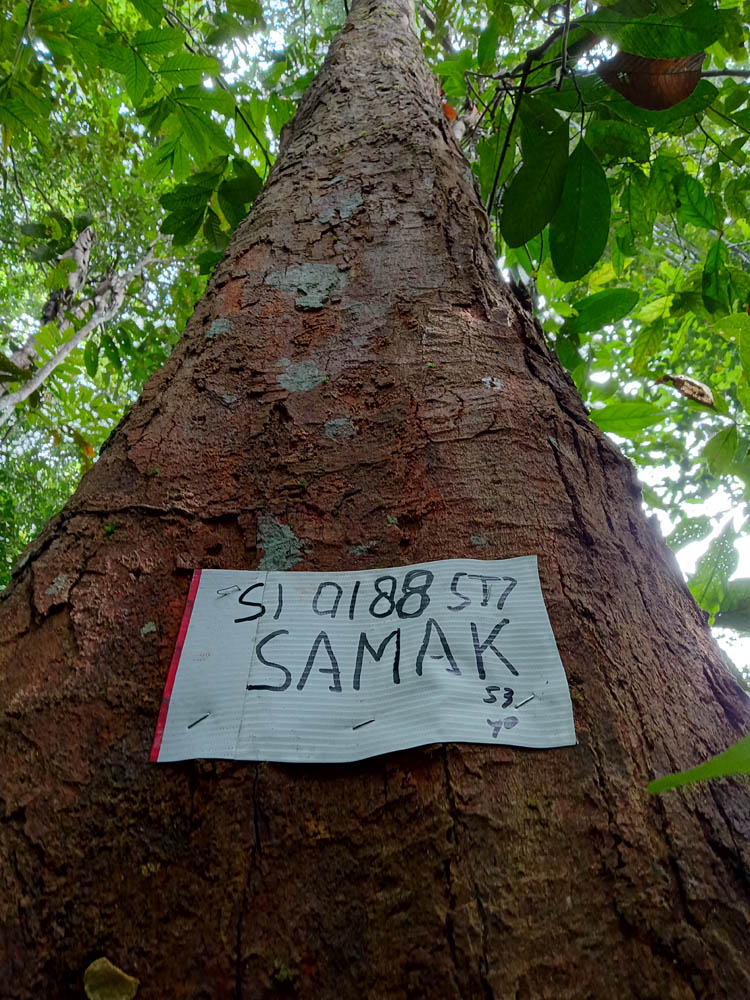 S1 0188 ST7
SAMAK
53
70